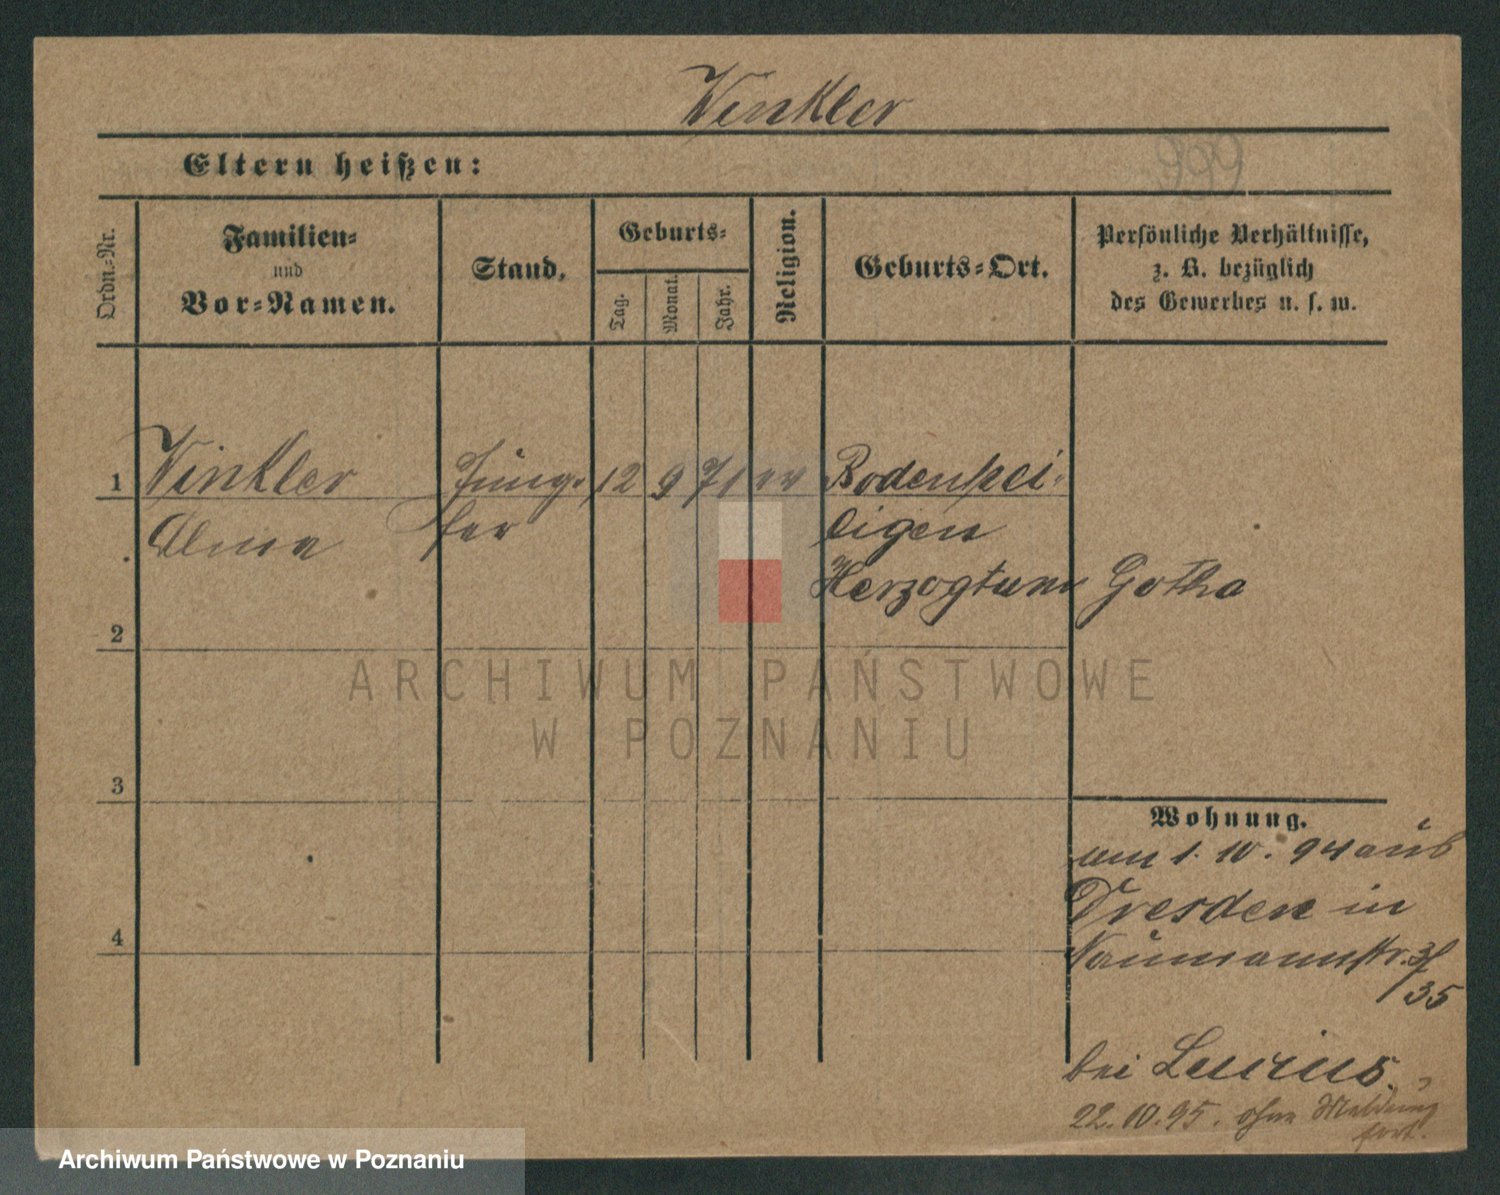 Winkler
Eltern heißen:
999
Ordn.-Nr.
Familien-
und
Vor-Namen.
Stand.
Geburts-
Tag.
Monat.
Jahr.
Religion.
Geburts-Ort.
Persönliche Verhältnisse,
z. B. bezüglich
des Gewerbes u. s. w.
1 Winkler Jung- 12 9 71 ev Bodenhei-
Alma fer ligen
Herzogtum Gotha
2
ARCHIWUM PAŃSTWOWE
W POZNANIU
3
Wohnung.
am 1. 10. 94 aus
Dresden in
Naumannstr.
35
4
bei
22. 10. 95. ohne Meldung
fort.
Archiwum Państwowe w Poznaniu